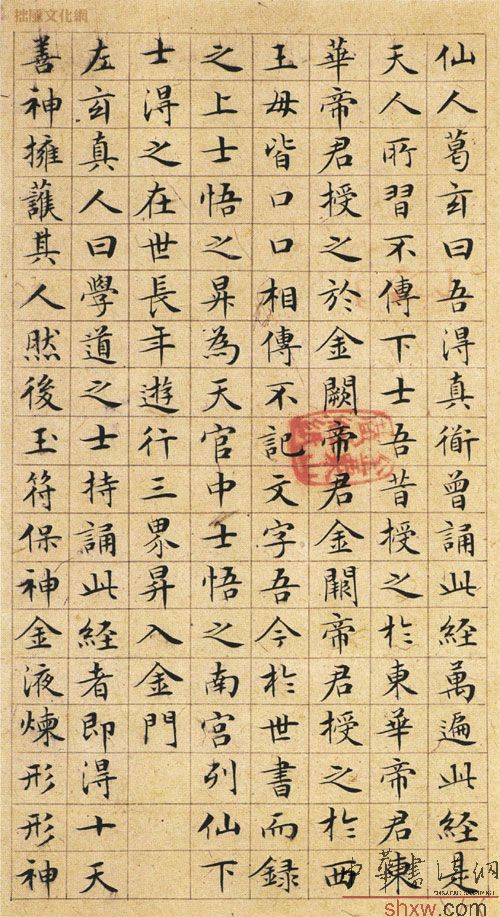 仙人葛玄曰吾淂真衜曾誦此經萬遍此經其
天人所習不傳下士吾昔授之於東華帝君東
華帝君授之於金闕帝君金闕帝君授之於西
王母皆口口相傳不記文字吾今於世書而録
之上士悟之昇為天官中士悟之南宮列仙下
士淂之在世長年遊行三界昇入金門
左玄真人曰學道之士持誦此經者即淂十天
善神擁護其人然後玉符保神金液煉形形神
拙風文化網
中華書法網
shxw.com